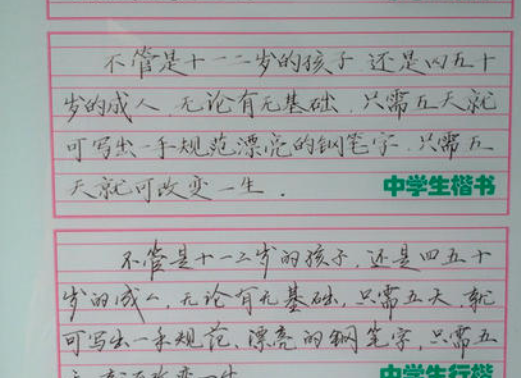 不管是十一二岁的孩子,还是四五十
岁的成人,无论有无基础,只需五天就
可写出一手规范漂亮的钢笔字,只需五
天就可改变一生.
中学生楷书
不管是十一二岁的孩子,还是四五十
岁的成人,无论有无基础,只需五天,就
可写出一手规范、漂亮的钢笔字,只需五
中学生行楷